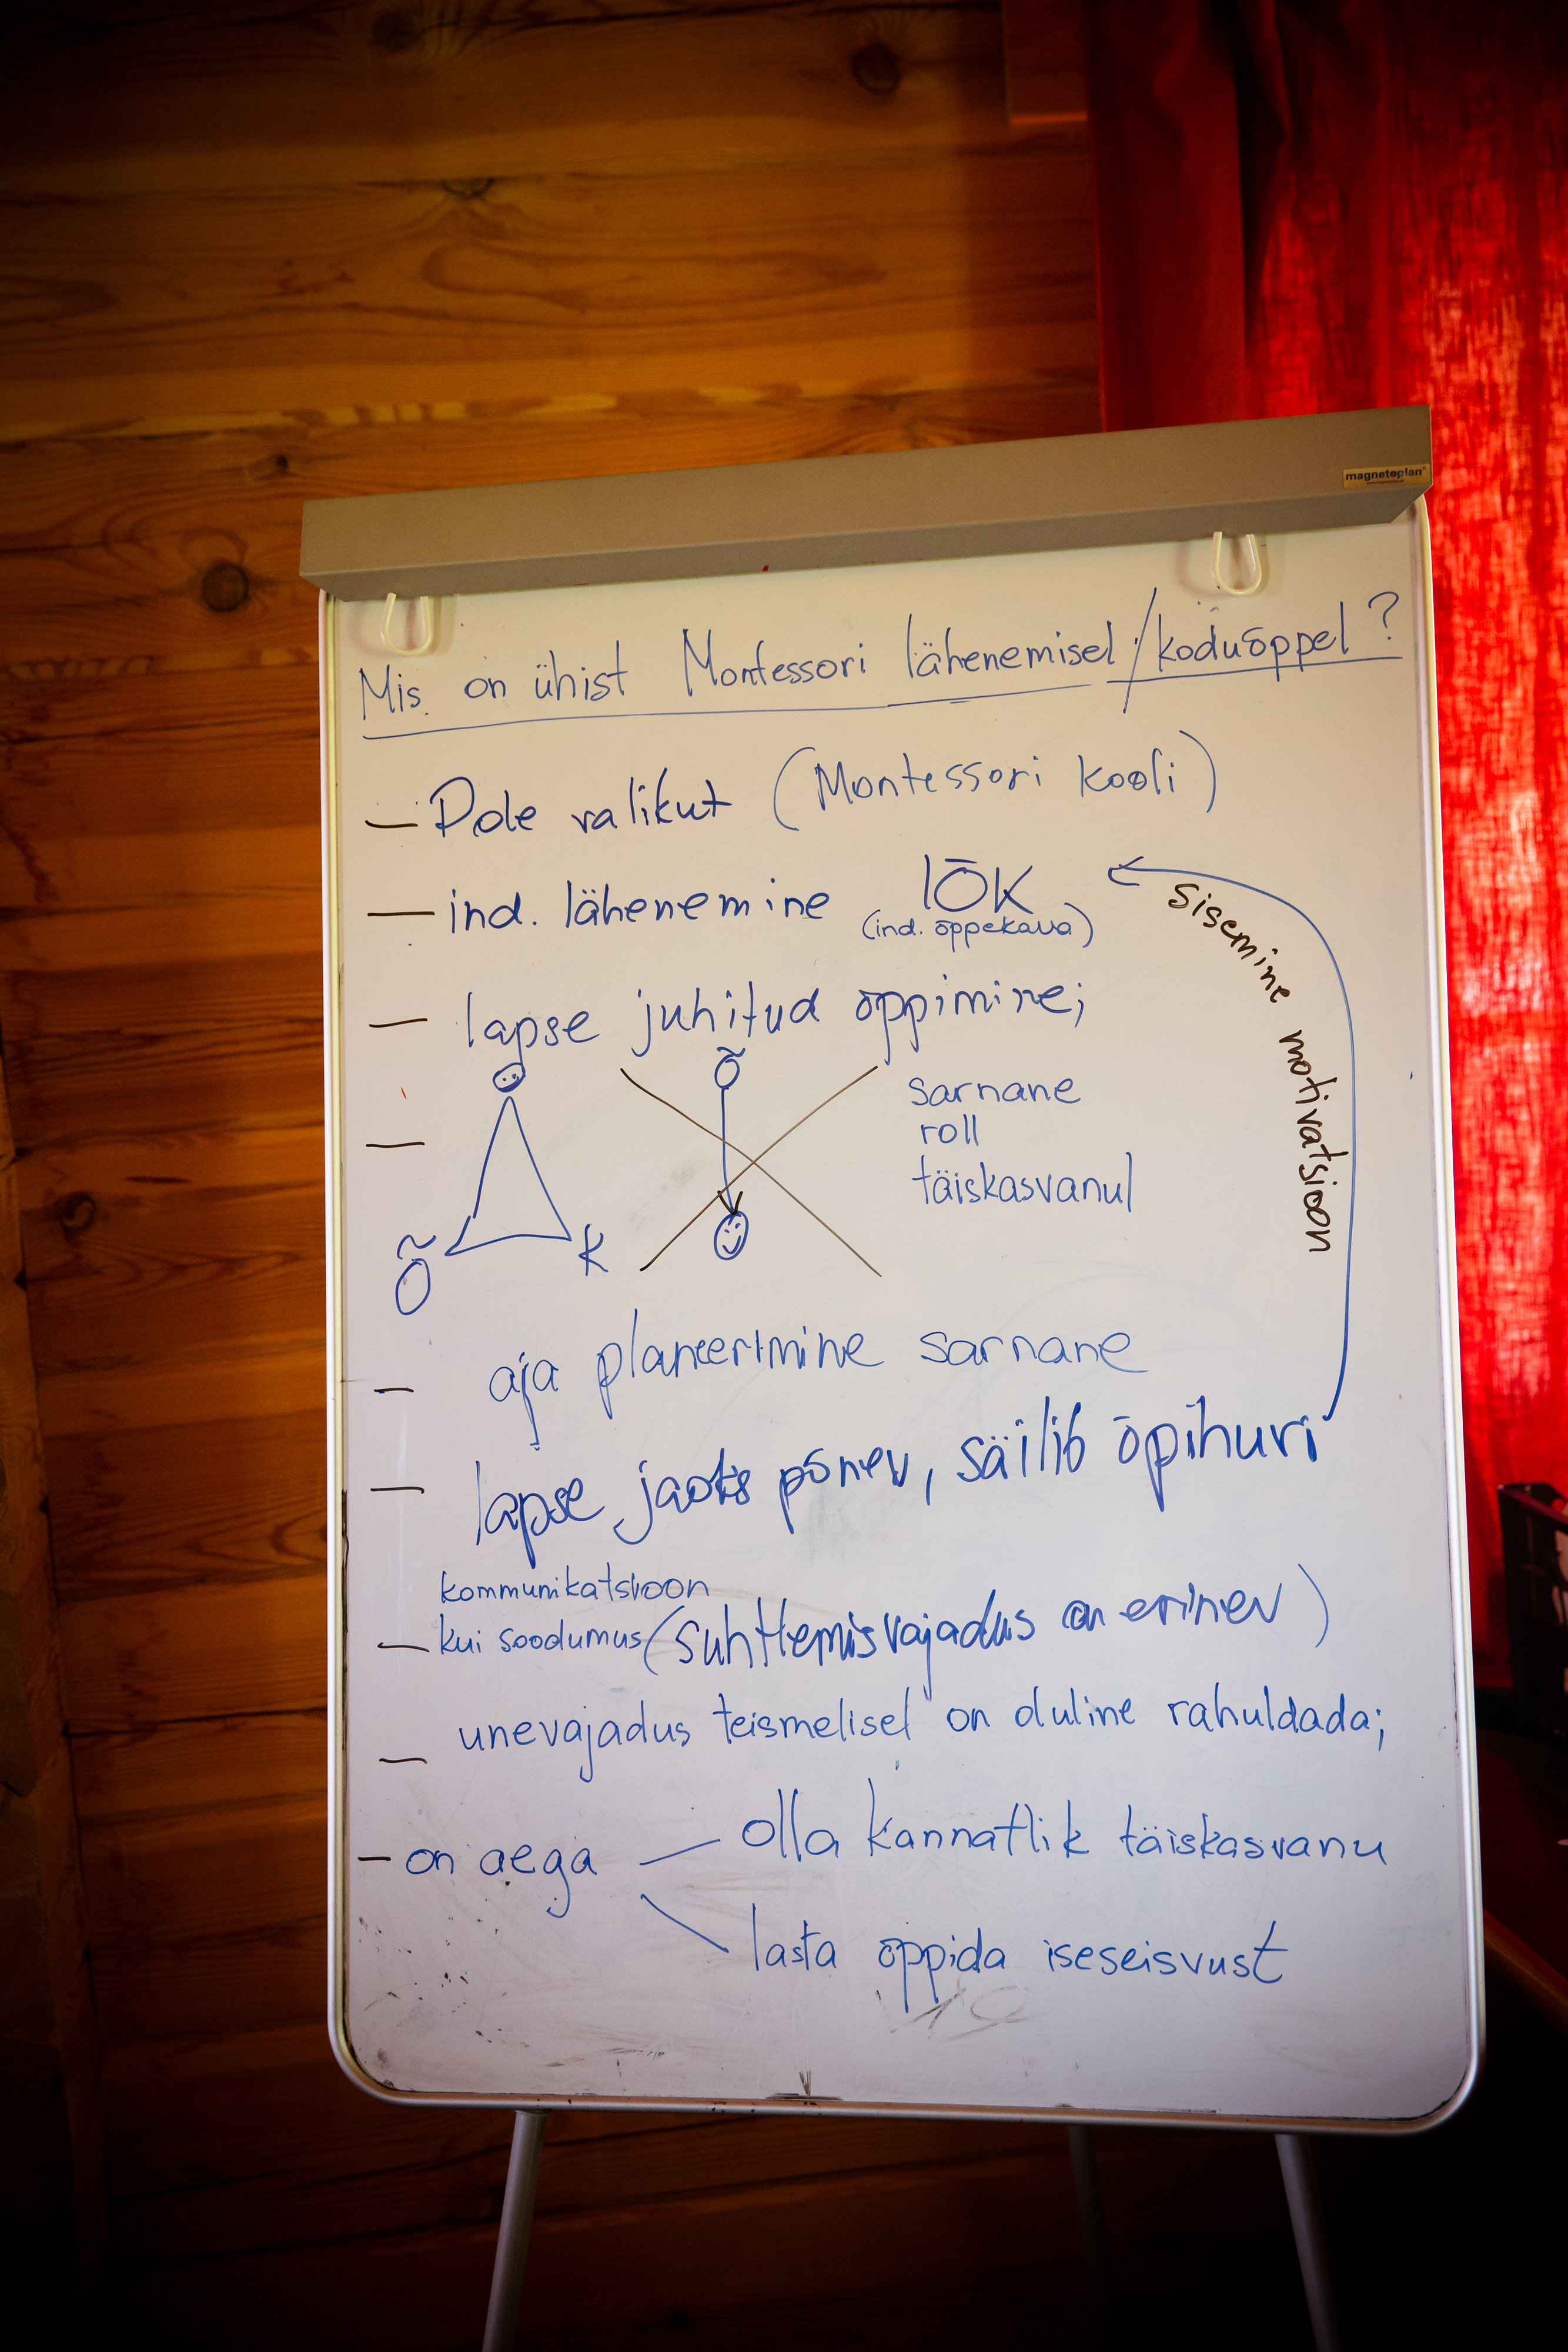 magnetoplan
Mis on ühist Montessori lähenemisel / koduõppel?
— Pole valikut (Montessori kooli)
— ind. lähenemine IÕK
(ind. õppekava)
sisemine motivatsioon
— lapse juhitud õppimine;
—
Õ K
Õ
sarnane
roll
täiskasvanul
— aja planeerimine sarnane
— lapse jaoks põnev, säilib õpihuvi
kommunikatsioon
— kui soodumus (suhtlemisvajadus on erinev)
— unevajadus teismelisel on oluline rahuldada;
— on aega — olla kannatlik täiskasvanu
lasta õppida iseseisvust